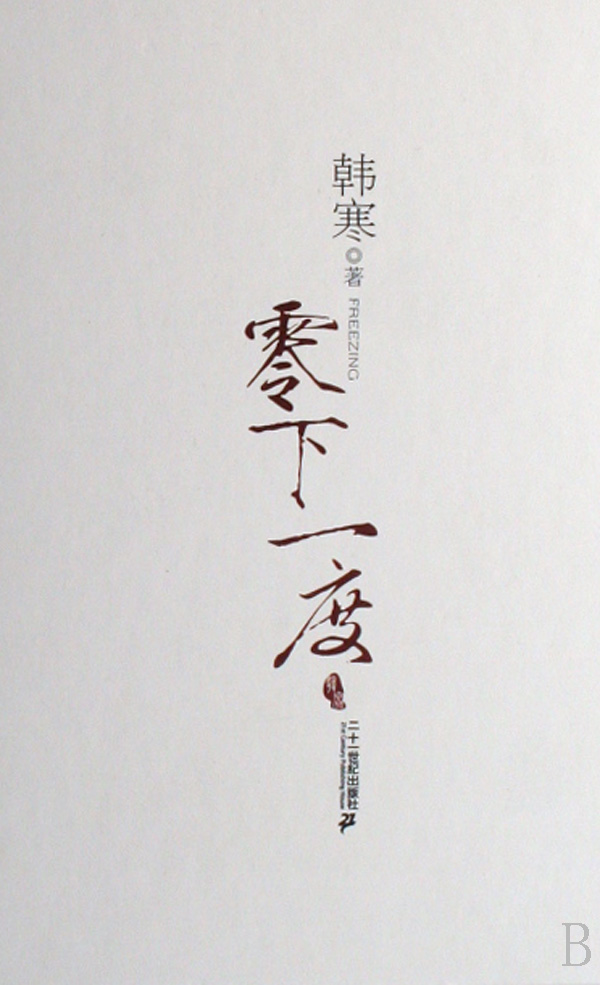 韩寒
著
FREEZING
零下一度
二十一世紀出版社
21st Century Publishing House
21
B